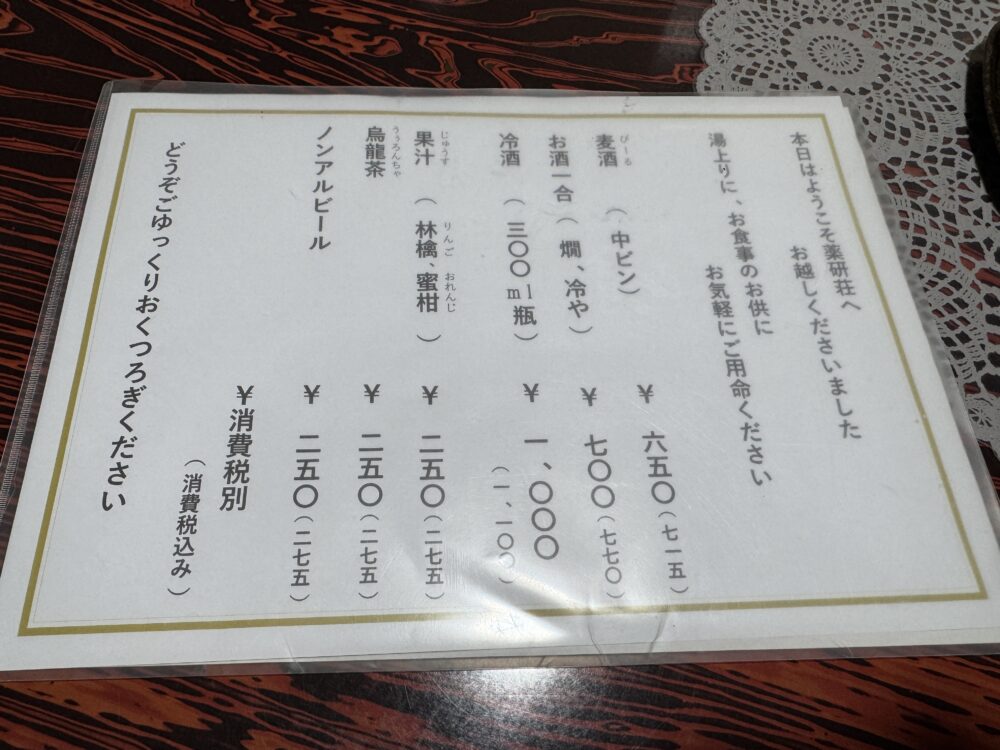 本日はようこそ薬研荘へ
お越しくださいました
湯上りに、お食事のお供に
お気軽にご用命ください
麦酒 (中ビン) ¥ 六五〇(七一五)
びーる
お酒一合(燗、冷や) ¥ 七〇〇(七七〇)
冷酒 (三〇〇ml瓶) ¥ 一、〇〇〇
(一、一〇〇)
果汁 (林檎、蜜柑) ¥ 二五〇(二七五)
じゅうす りんご おれんじ
烏龍茶 ¥ 二五〇(二七五)
うぅろんちゃ
ノンアルビール ¥ 二五〇(二七五)
¥消費税別
(消費税込み)
どうぞごゆっくりおくつろぎください